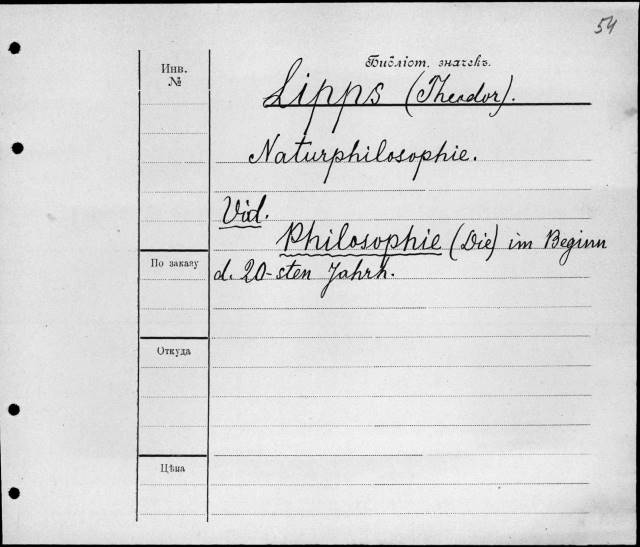 54
Инв.
№
Библіот. значекъ.
Lipps (Theodor).
Naturphilosophie.
Vid.
Philosophie (Die) im Beginn
По заказу
d. 20-sten Jahrh.
Откуда
Цѣна